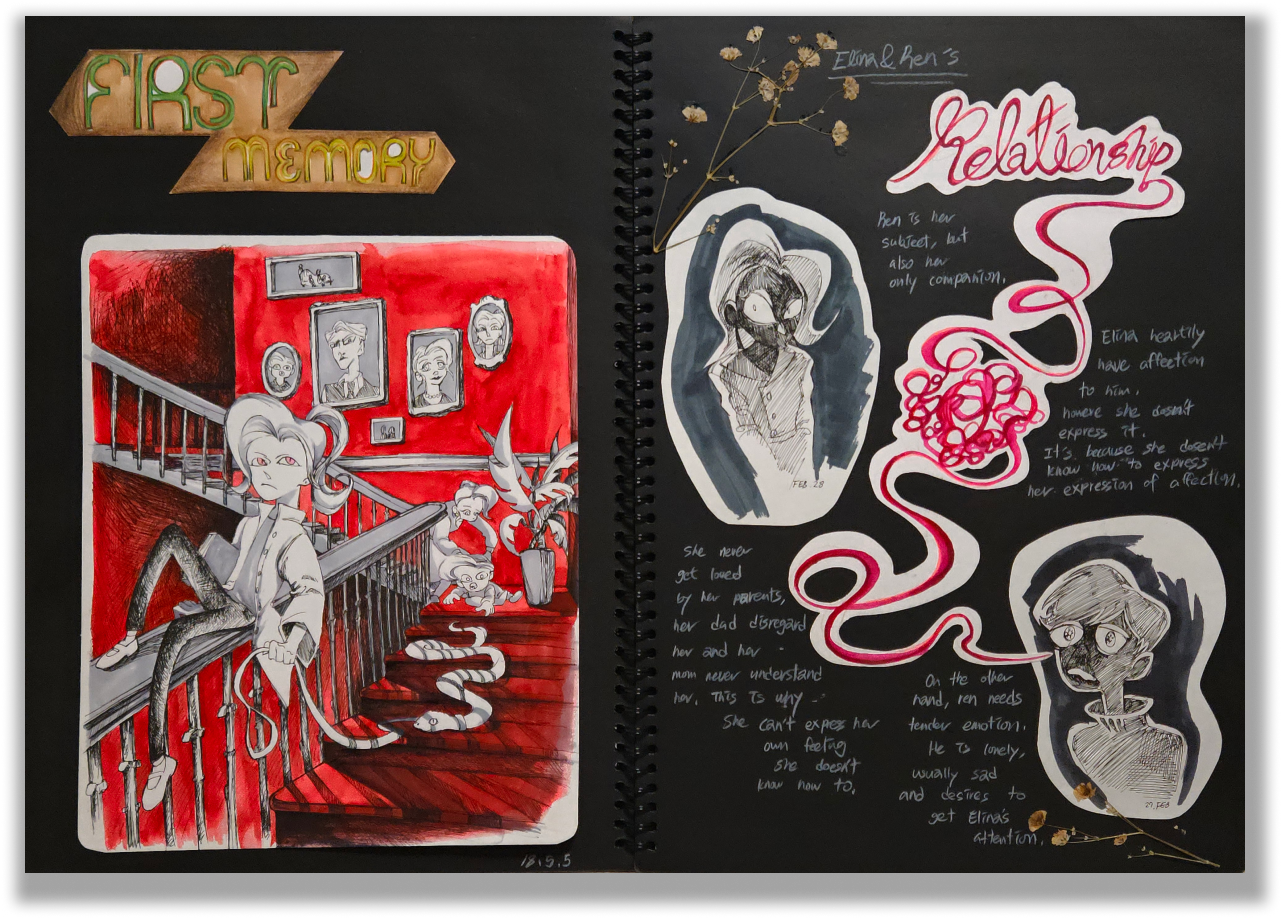 FIRST
MEMORY
18.9.5
Elina & Ren's
Relationship
Ren is her
subject, but
also her
only companion.
FEB 28
Elina heartily
have affection
to him.
howere she doesn't
express it.
It's because she doesen't
know how to express
her expression of affection.
She never
get loved
by her parents,
her dad disregard
her and her -
mom never understand
her. This is why -
She can't expess her
own feeling
she doesn't
know how to.
On the other
hand, ren needs
tender emotion.
He is lonely,
usually sad
and desires to
get Elina's
attention.
29. FEB